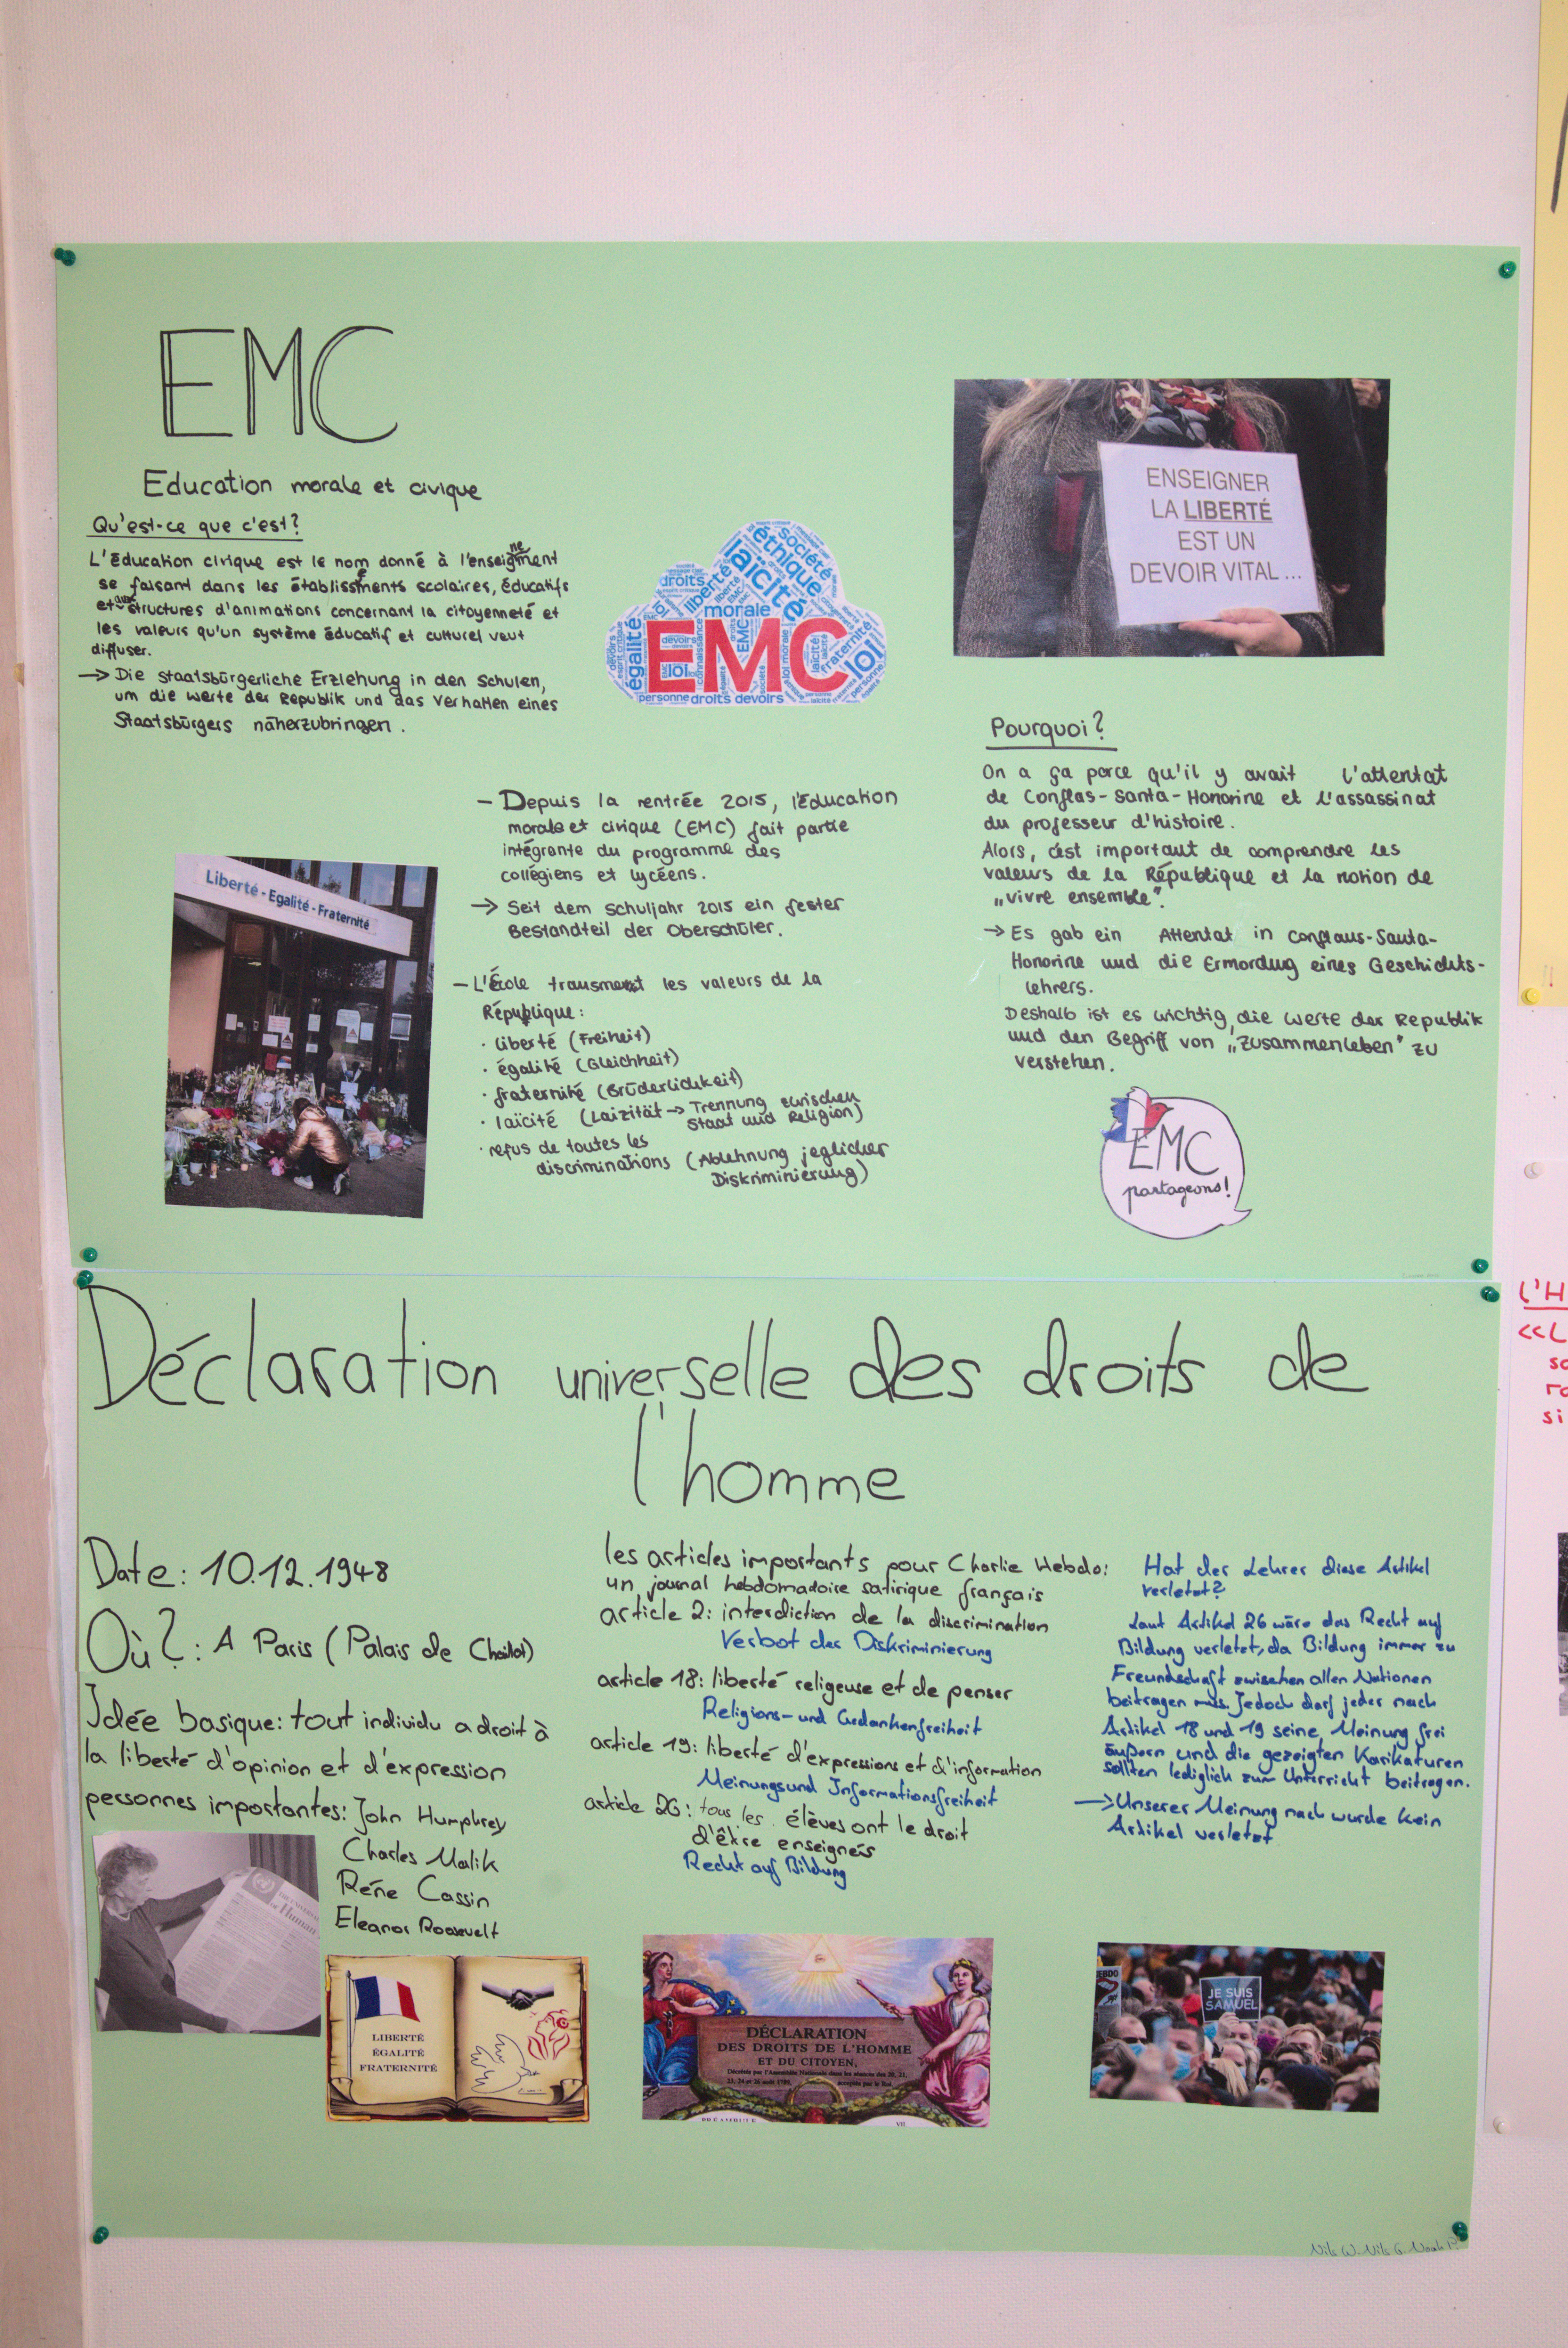 EMC
Education morale et civique
Qu'est-ce que c'est?
L'éducation civique est le nom donné à l'enseignement
se faisant dans les établissements scolaires, éducatifs
et aux structures d'animations concernant la citoyenneté et
les valeurs qu'un système éducatif et culturel veut
diffuser.
→ Die staatsbürgerliche Erziehung in den Schulen,
um die Werte der Republik und das Verhalten eines
Staatsbürgers näherzubringen.
droits
liberté
laïcité
éthique
société
morale
égalité
EMC
loi
fraternité
personne droits devoirs
ENSEIGNER
LA LIBERTÉ
EST UN
DEVOIR VITAL ...
Liberté - Egalité - Fraternité
– Depuis la rentrée 2015, l'Éducation
morale et civique (EMC) fait partie
intégrante du programme des
collégiens et lycéens.
→ Seit dem Schuljahr 2015 ein fester
Bestandteil der Oberschüler.
– L'École transmet les valeurs de la
République:
· liberté (Freiheit)
· égalité (Gleichheit)
· fraternité (Brüderlichkeit)
· laïcité (Laizität → Trennung zwischen
Staat und Religion)
· refus de toutes les
discriminations (Ablehnung jeglicher
Diskriminierung)
Pourquoi?
On a ça parce qu'il y avait l'attentat
de Conflas-Santa-Honorine et l'assassinat
du professeur d'histoire.
Alors, c'est important de comprendre les
valeurs de la République et la notion de
„vivre ensemble".
→ Es gab ein Attentat in Conflaus-Santa-
Honorine und die Ermordung eines Geschichts-
lehrers.
Deshalb ist es wichtig, die Werte der Republik
und den Begriff von „Zusammenleben" zu
verstehen.
EMC
partageons!
Déclaration universelle des droits de
l'homme
Date: 10.12.1948
Où?: A Paris (Palais de Chaillot)
Idée basique: tout individu a droit à
la liberté d'opinion et d'expression
personnes importantes: John Humphrey
Charles Malik
Réne Cassin
Eleanor Roosevelt
les articles importants pour Charlie Hebdo:
un journal hebdomadoire satirique français
article 2: interdiction de la discrimination
Verbot der Diskriminierung
article 18: liberté religeuse et de penser
Religions- und Gedankenfreiheit
article 19: liberté d'expressions et d'information
Meinungsund Informationsfreiheit
article 26: tous les élèves ont le droit
d'être enseignés
Recht auf Bildung
Hat der Lehrer diese Artikel
verletzt?
Laut Artikel 26 wäre das Recht auf
Bildung verletzt, da Bildung immer zu
Freundschaft zwischen allen Nationen
beitragen muss. Jedoch darf jeder nach
Artikel 18 und 19 seine Meinung frei
äußern und die gezeigten Karikaturen
sollten lediglich zum Unterricht beitragen.
→ Unserer Meinung nach wurde kein
Artikel verletzt
LIBERTÉ
ÉGALITÉ
FRATERNITÉ
DÉCLARATION
DES DROITS DE L'HOMME
ET DU CITOYEN,
PRÉAMBULE
VII
HEBDO
JE SUIS
SAMUEL
Nils W. Nils G. Noah P.
L'H
<<L
so
ra
si